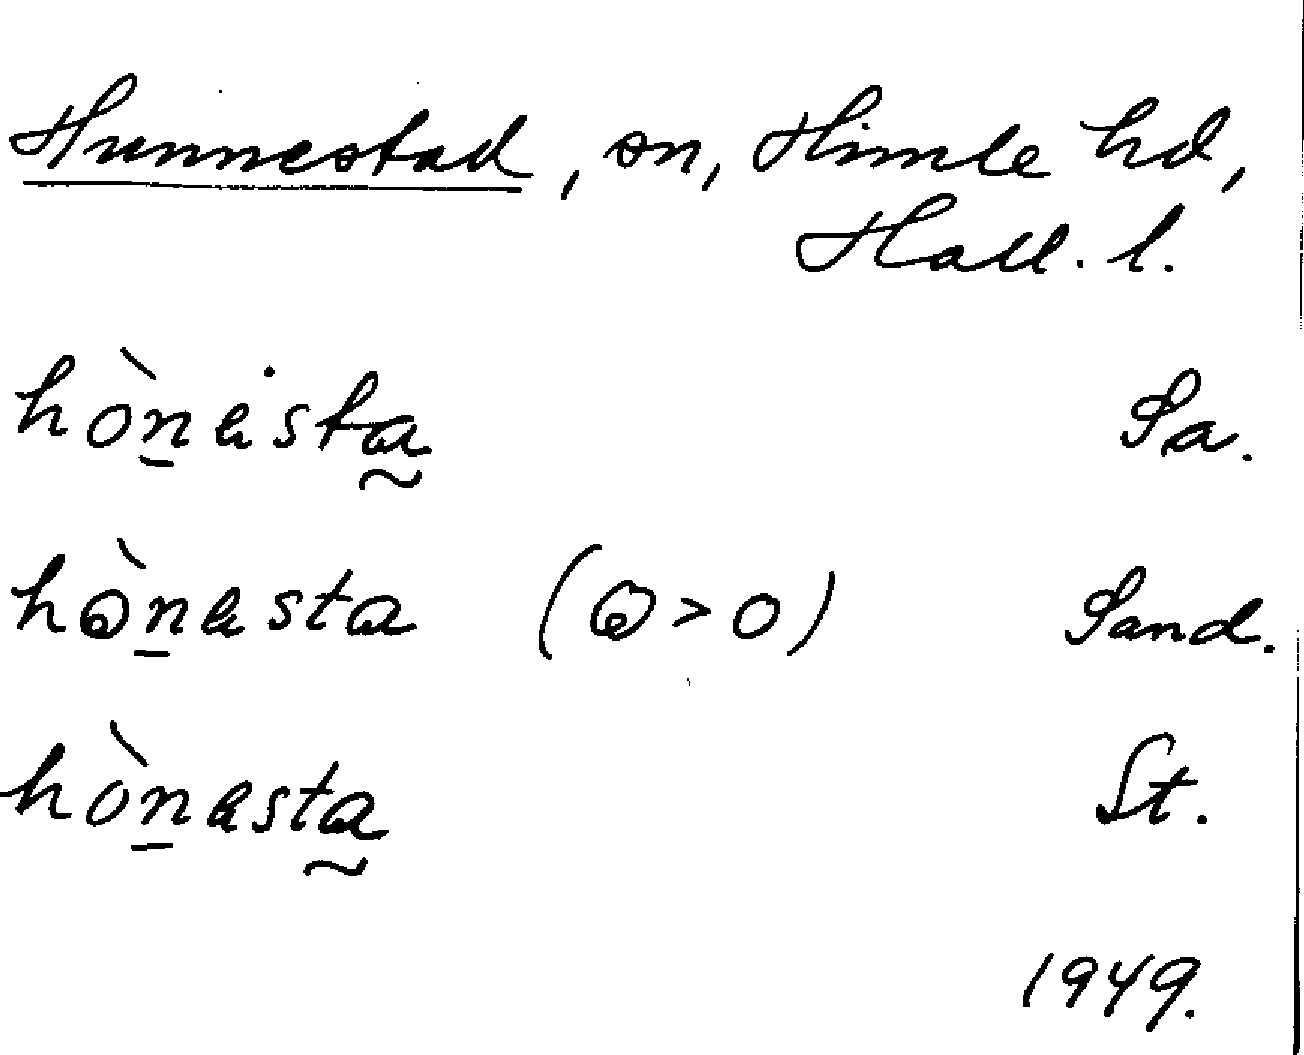 Hunnestad, sn, Himle hd,
Hall. l.
hòn̲ėsta̰ Sa.
hòn̲esta (ꝍ>o) Sand.
hòn̲esta̰ St.
1949.